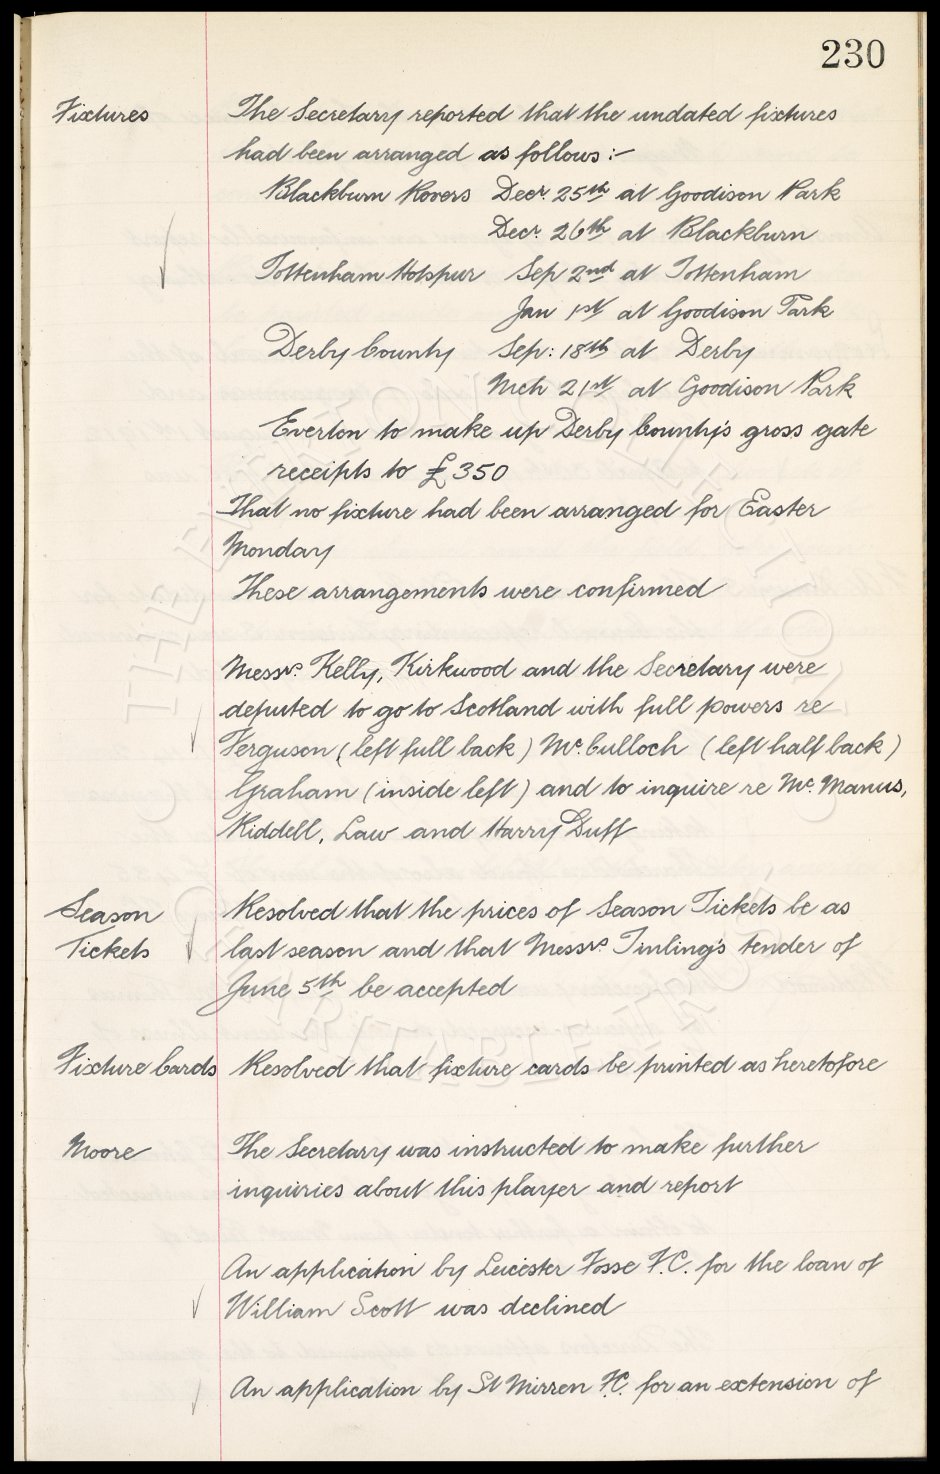 230
Fixtures The Secretary reported that the undated fixtures
had been arranged as follows :-
Blackburn Rovers Decr. 25th at Goodison Park
Decr. 26th at Blackburn
Tottenham Hotspur Sep 2nd at Tottenham
Jan 1st at Goodison Park
Derby County Sep: 18th at Derby
Mch 21st at Goodison Park
Everton to make up Derby County's gross gate
receipts to £350
That no fixture had been arranged for Easter
Monday
These arrangements were confirmed
Messrs. Kelly, Kirkwood and the Secretary were
deputed to go to Scotland with full powers re
Ferguson (left full back) Mc.Culloch (left half back)
Graham (inside left) and to inquire re Mc. Manus,
Riddell, Law and Harry Duff
Season Resolved that the prices of Season Tickets be as
Tickets last season and that Messrs Tinling's tender of
June 5th be accepted
Fixture Cards Resolved that fixture cards be printed as heretofore
Moore The Secretary was instructed to make further
inquiries about this player and report
An application by Leicester Fosse F.C. for the loan of
William Scott was declined
An application by St Mirren F.C. for an extension of
THE EVERTON COLLECTION
CHARITABLE TRUST